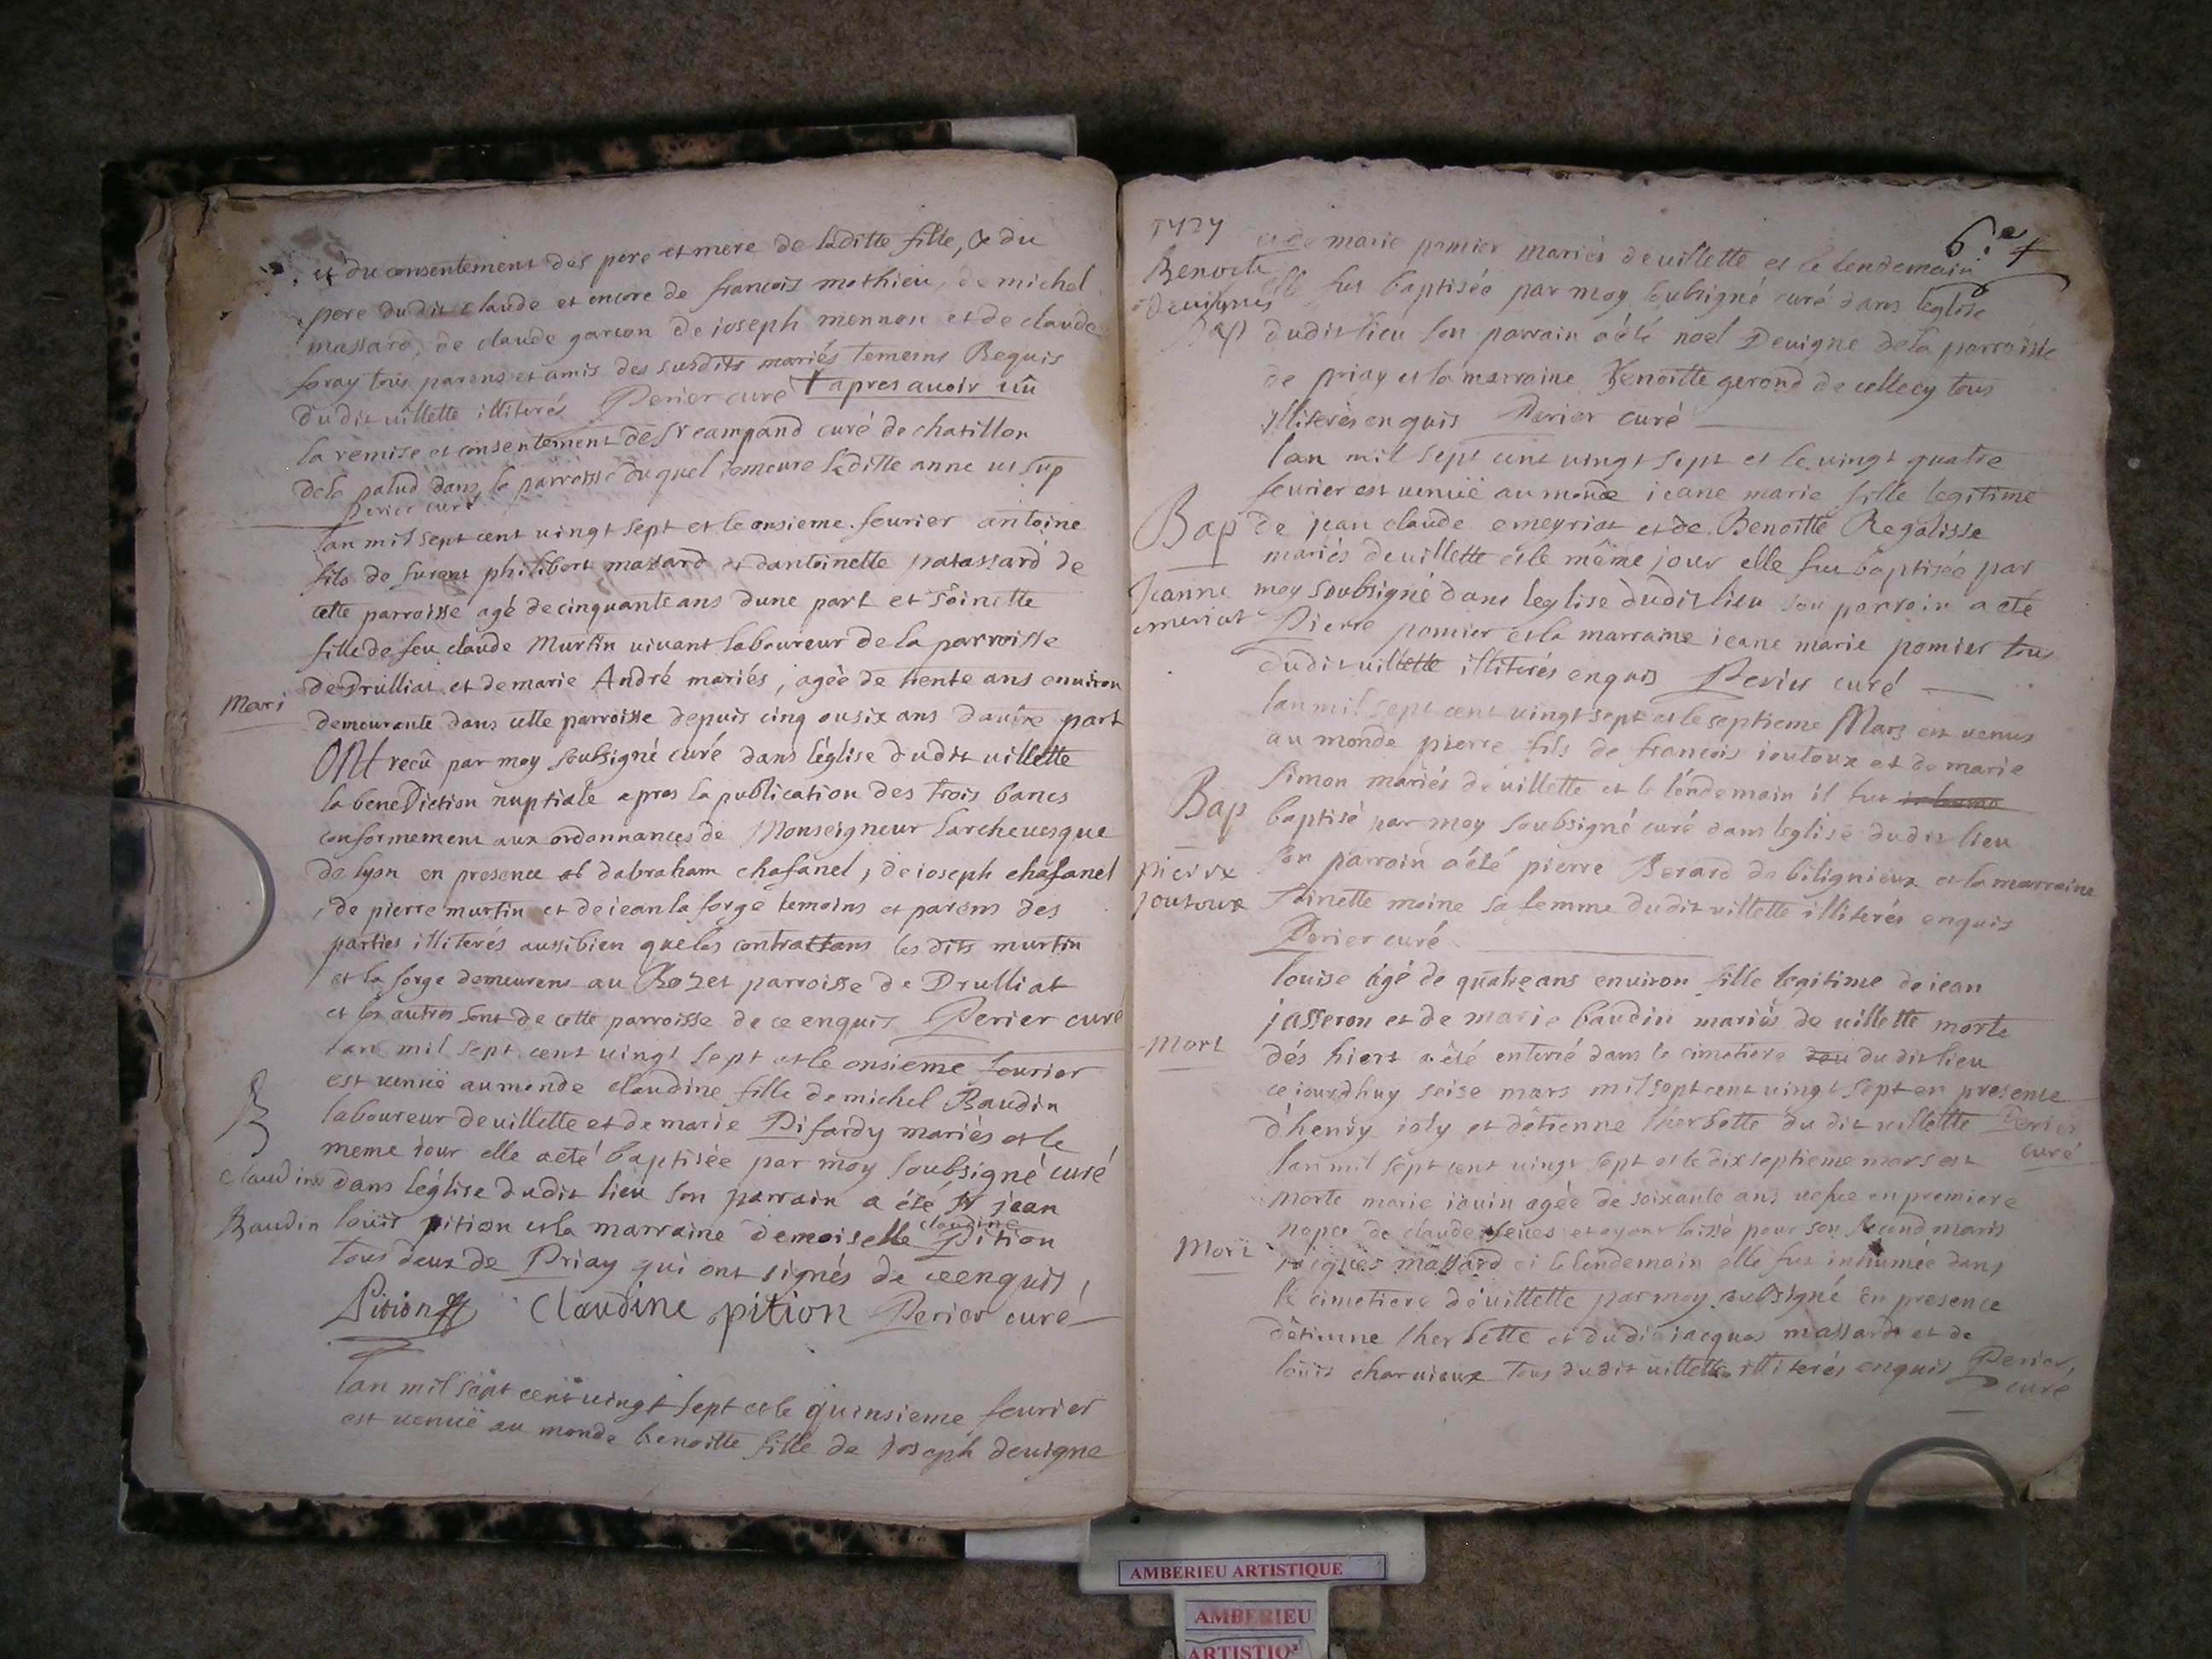 et du consentement des pere et mere de laditte fille, & du
pere dudit claude et encore de francois mathieu, de michel
massard, de claude garcon de ioseph mennon et de claude
foray tous parens et amis des susdits mariés temoins Requis
dudit villette illiterés Perier curé † apres avoir vû
la remise et consentement de sr campand curé de chatillon
de la palud dans la parroisse duquel demeure laditte anne ut sup
Perier curé
lan mil sept cent vingt sept et le onsieme fevrier antoine
fils de furent philibert massard et dantoinette patassard de
cette parroisse agé de cinquante ans dune part et toinette
fille de feu claude Murtin vivant laboureur de la parroisse
de Drulliat et de marie André mariés, agée de trente ans environ
Mari
demeurante dans cette parroisse depuis cinq ou six ans dautre part
ONt recû par moy soubsigné curé dans léglise dudit villette
la beneDiction nuptiale apres la publication des trois bancs
conformement aux ordonnances de Monseigneur larchevesque
de lyon en presence dabraham chafanel, de ioseph chafanel
, de pierre murtin et de iean la forge temoins et parens des
parties illiterés aussi bien que les contrattans les dits murtin
et la forge demeurent au Rozet parroisse de Drulliat
et les autres sont de cette parroisse de ce enquis Perier curé
lan mil sept cent vingt sept et le onsieme fevrier
est venuë au monde claudine fille de michel Baudin
B
laboureur de villette et de marie Pifardy mariés et le
meme iour elle a eté baptisée par moy soubsigné curé
claudine
dans léglise dudit lieu son parrain a été Sr jean
Baudin
louis pition et la marraine demoiselle claudine Pition
tous deux de Priay qui ont signés de ce enquis,
Pition claudine pition Perier curé
lan mil sept cent vingt sept et le quinsieme fevrier
est venuë au monde benoitte fille de ioseph devigne
1727
6.e
et de marie pomier mariés de villette et le lendemain
Benoite
elle fut baptisée par moy soubsigné curé dans leglise
devignes
Bap
dudit lieu son parrain a été noel Devigne de la parroisse
de priay et la marraine Benoitte gerond de cellecy tous
illiterés enquis Perier curé
lan mil sept cent vingt sept et le vingt quatre
fevrier est venuë au monde ieane marie fille legitime
Bap
de jean claude emeyriat et de Benoitte Regalisse
mariés de villette et le même jour elle fut baptisée par
Jeanne
moy soubsigné dans leglise dudit lieu son parrain a eté
emeriat
Pierre pomier et la marraine ieane marie pomier tous
dudit villette illiterés enquis Perier curé
lan mil sept cent vingt sept et le septieme Mars est venus
au monde pierre fils de francois ioutoux et de marie
simon mariés de villette et le léndemain il fut
Bap
baptisé par moy soubsigné curé dans leglise dudit lieu
son parrain a été pierre Berard de bilignieux et la marraine
pierre
joutoux
toinette moine sa femme dudit villette illiterés enquis
Perier curé
louise agé de quatre ans environ fille legitime de iean
jasseron et de marie baudin mariés de villette morte
Mort
dés hiert a été enterré dans le cimetiere du dit lieu
ce iourdhuy seise mars mil sept cent vingt sept en presence
d'henry ioly et détienne lherbette du dit villette Perier
curé
lan mil sept cent vingt sept et le dix septieme mars est
morte marie iouin agée de soixante ans vefve en premiere
nopce de claude et ayant laissé pour son second maris
Mort
iacques massard et le lendemain elle fut inhumée dans
le cimetiere de villette par moy soubsigné en presence
détienne lherbette et dudit iacques massard et de
louis charvieux tous dudit villette illiterés enquis Perier
curé
AMBERIEU ARTISTIQUE
AMBERIEU
ARTISTIQ